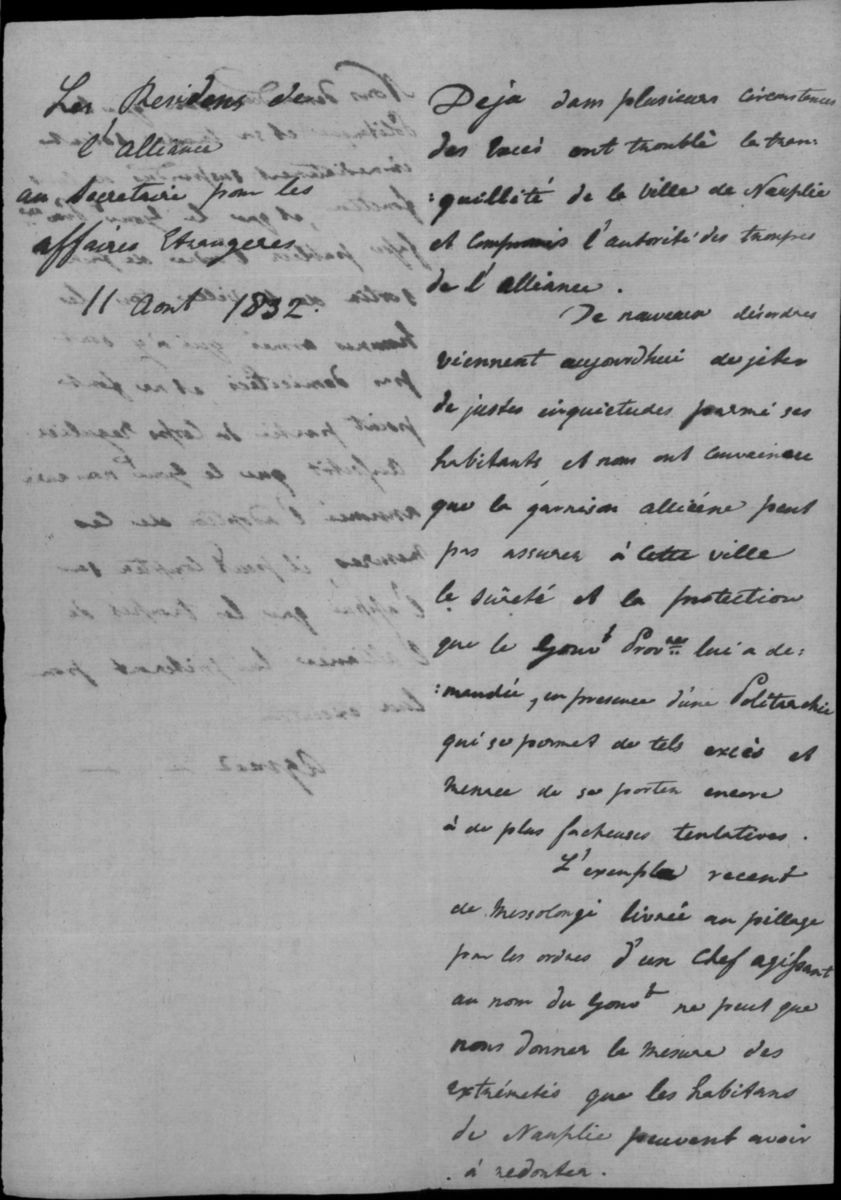 Les Residens de
l'alliance
au Secretaire pour les
affaires Etrangeres
11 Aout 1832.
Deja dans plusieurs circonstances
des excés ont troublé la tran:
:quillété de la ville de Nauplie
et compromis l'autorité des troupes
de l'alliance.
De nouveaux désordres
viennent aujourdhui de jeter
de justes inquietudes parmi ses
habitants et nous ont convaincu
que la garnison alliéene peut
pas assurer à cette ville
la sûreté et la protection
que le Gouvt Provre lui a de:
:mandée, en presence d'une Politarchie
qui se permet de tels excès et
menace de se porter encore
à de plus facheuses tentatives.
L'exemple recent
de Messolongi livrée au pillage
par les ordres d'un Chef agissant
au nom du Gouvt ne peut que
nous donner la mesure des
extrémetés que les habitans
de Nauplie peuvent avoir
à redouter.